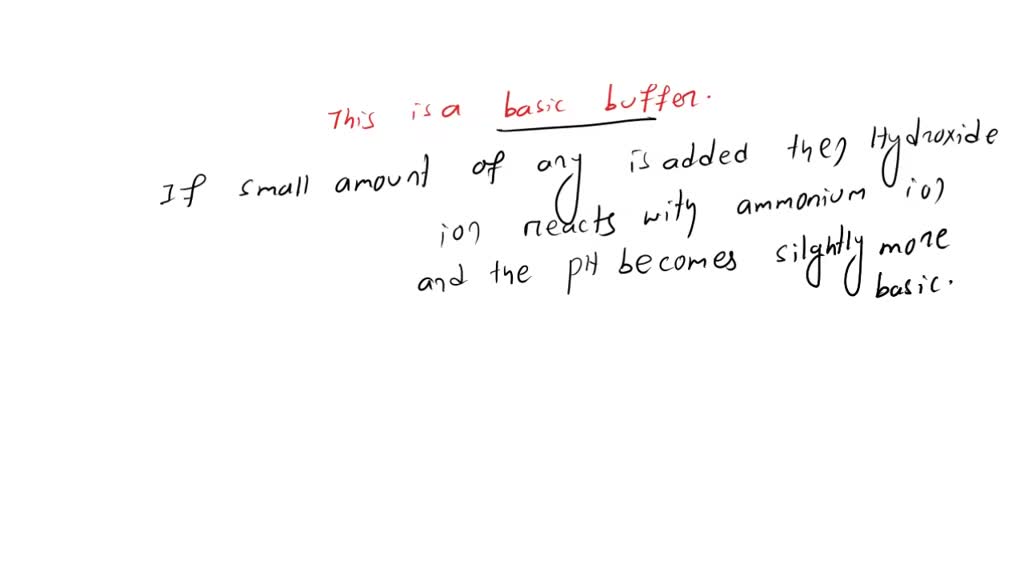 This is a basic buffer.
If small amount of any is added then Hydroxide
ion reacts with ammonium ion
and the pH becomes silghtly more
basic.